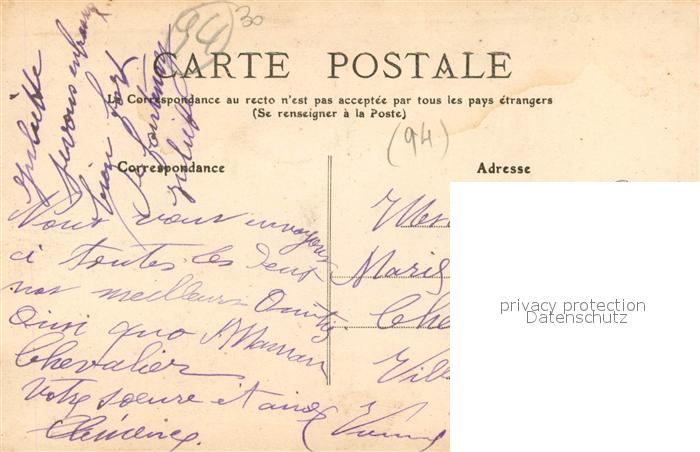 30
94
CARTE POSTALE
La Correspondance au recto n'est pas acceptée par tous les pays étrangers
(Se renseigner à la Poste)
(94)
Correspondance
Adresse
Juliette
je vous embrasse
bien fort
Juliette
Nous vous envoyons
ci toutes les deux
nos meilleurs Amitiés
Ainsi que Maman
Chevalier
Votre soeure et amie
Clémence.
Maris
Che
Vill
Vienne
privacy protection
Datenschutz